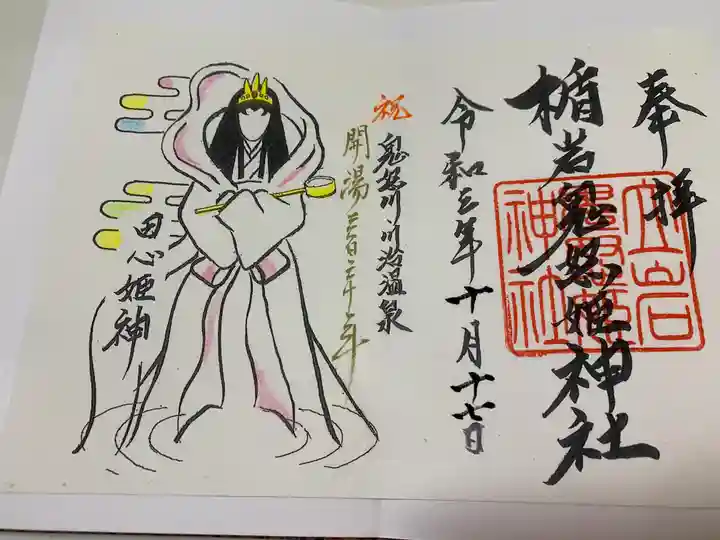 奉拝
楯岩鬼怒姫神社
令和三年十月十七日
祝 鬼怒川・川治温泉
開湯三百三十年
田心姫神